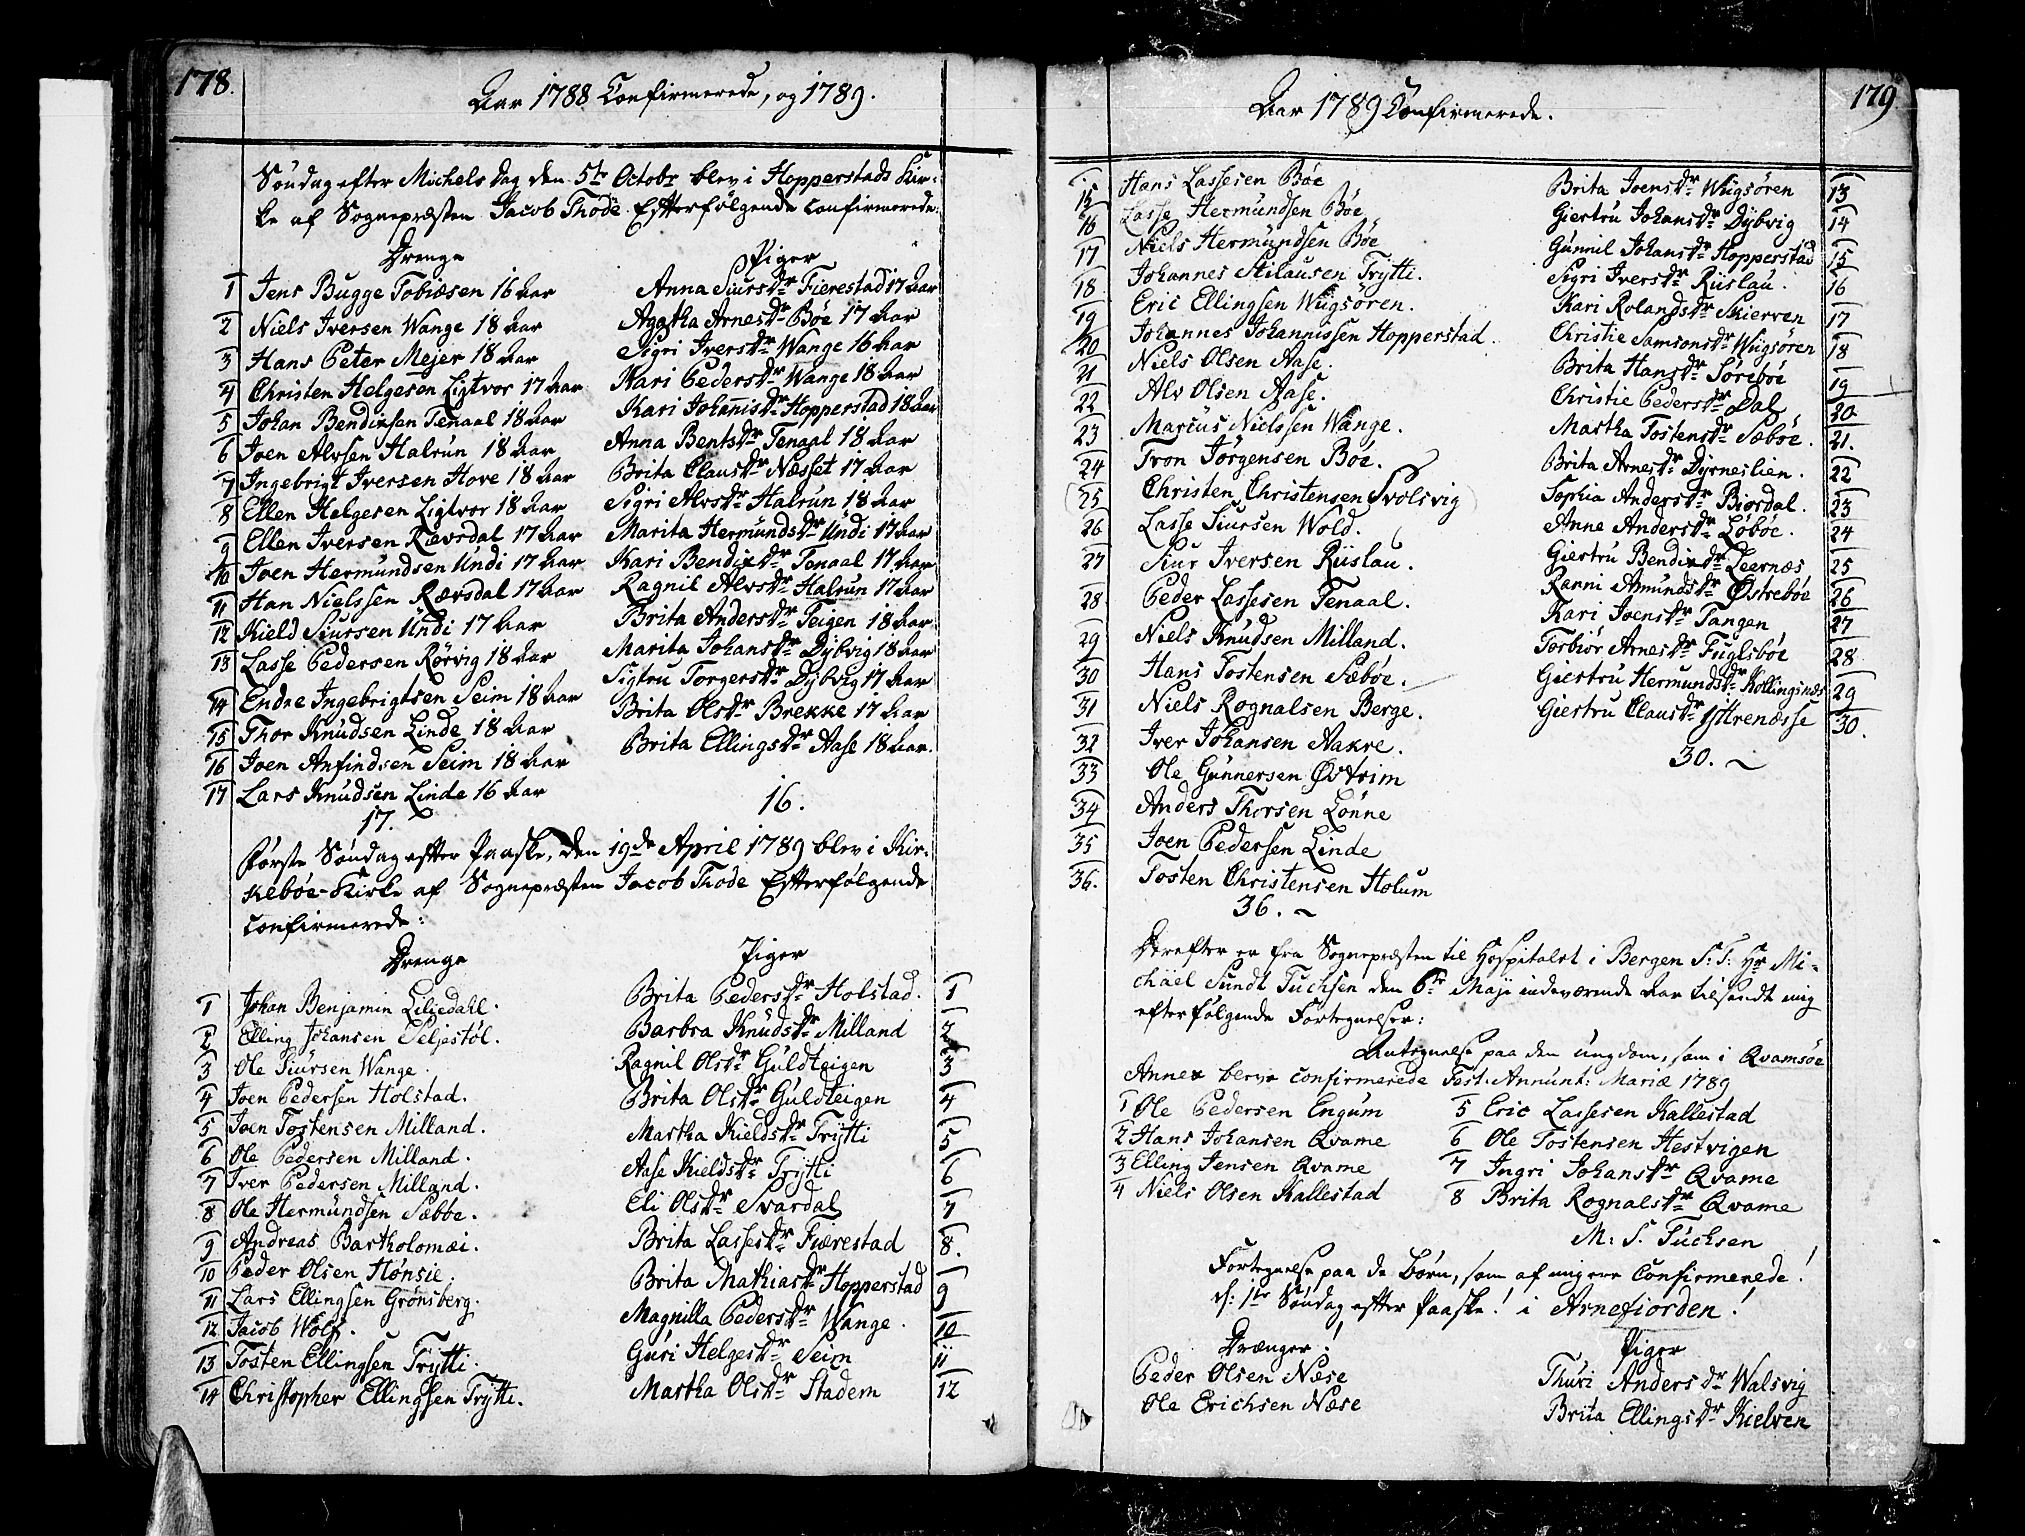 178.
Aar 1788 Confirmerede, og 1789.
Söndag efter Michels Dag den 5te Octobr blev i Hopperstads Kir-
ke af Sognepræsten Jacob Thode Efterfølgende Confirmerede:
Drenge
1 Jens Bugge Tobiæsen 16 Aar
2 Niels Iversen Wange 18 Aar
3 Hans Peter Mejer 18 Aar
4 Christen Helgesen Ligtvor 17 Aar
5 Johan Bendixsen Tenaal 18 Aar
6 Joen Alvsen Halrun 18 Aar
7 Ingebrigt Iversen Hove 18 Aar
8 Ellen Helgesen Ligtvor 18 Aar
9 Ellen Iversen Rævsdal 17 Aar
10 Joen Hermundsen Undi 17 Aar
11 Han Nielssen Rævsdal 17 Aar
12 Kield Siursen Undi 17 Aar
13 Lasse Pedersen Rörvig 18 Aar
14 Endre Ingebrigtsen Seim 18 Aar
15 Thor Knudsen Linde 18 Aar
16 Joen Anfindsen Seim 18 Aar
17 Lars Knudsen Linde 16 Aar
17.
Piger
Anna Siursdr Fierestad 17 Aar
Agatha Arnesdr Böe 17 Aar
Sigri Iversdr Wange 16 Aar
Kari Pedersdr Wange 18 Aar
Kari Johannisdr Hopperstad 18 Aar
Anna Bentsdr Tenaal 18 Aar
Brita Clausdr Næsset 17 Aar
Sigri Alvsdr Halrun 18 Aar
Marita Hermundsdr Undi 17 Aar
Kari Bendixdr Tenaal 17 Aar
Ragnil Alvsdr Halrun 17 Aar
Brita Andersdr Teigen 18 Aar
Marita Johansdr Dybvig 18 Aar
Sigtru Torgersdr Dybvig 17 Aar
Brita Olsdr Brekke 17 Aar
Brita Ellingsdr Aase 18 Aar.
16.
Første Söndag efter Paaske, den 19de April 1789 blev i Kir-
keböe-Kirke af Sognepræsten Jacob Thode Efterfølgende
Confirmerede:
Drenge
1 Johan Benjamin Liliedahl.
2 Elling Johansen Seljestöl.
3 Ole Siursen Wange.
4 Joen Pedersen Holstad.
5 Joen Tostensen Milland.
6 Ole Pedersen Milland.
7 Iver Pedersen Milland.
8 Ole Hermundsen Sæböe.
9 Andreas Bartholomæi.
10 Peder Olsen Hönsie.
11 Lars Ellingsen Grönsberg.
12 Jacob Wolf.
13 Tosten Ellingsen Trÿtti.
14 Christopher Ellingsen Trÿtti.
Piger
Brita Pedersdr Holstad. 1
Barbra Knudsdr Milland 2
Ragnil Olsdr Guldteigen 3
Brita Olsdr Guldteigen 4
Martha Kieldsdr Trÿtti 5
Aase Kieldsdr Trÿtti 6
Eli Olsdr Svardal 7
Brita Lassesdr Fiærestad 8.
Brita Mathiasdr Hopperstad 9
Magnilla Pedersdr Wange. 10
Guri Helgesdr Seim 11
Martha Olsdr Stadem 12
179
Aar 1789 Confirmerede.
15 Hans Lassesen Böe
16 Lasse Hermundsen Böe
17 Niels Hermundsen Böe
18 Johannes Stilausen Trÿtti.
19 Eric Ellingsen Wügsören.
20 Johannes Johannissen Hopperstad.
21 Niels Olsen Aase.
22 Alv Olsen Aase.
23 Marcus Nielssen Wange.
24 Tron Jörgensen Böe.
25 Christen Christensen Svolsvig
26 Lasse Siursen Wold.
27 Siur Iversen Rüslau.
28 Peder Lassesen Tenaal.
29 Niels Knudsen Milland.
30 Hans Tostensen Sæböe.
31 Niels Rognalsen Berge.
32 Iver Johansen Aakre.
33 Ole Gunnersen Østrim
34 Anders Thorsen Lönne
35 Joen Pedersen Linde
36. Tosten Christensen Holum
36.
Brita Joensdr Wügsören 13
Giertru Johansdr Dÿbvig 14
Gunnil Johansdr Hopperstad 15
Sigri Iversdr Rüslau. 16
Kari Rolandsdr Skierven 17
Christie Samsonsdr Wügsören 18
Brita Hansdr Söreböe 19
Christie Pedersdr Dal 20
Martha Tostensdr Sæböe. 21.
Brita Arnesdr Dyrneslien. 22
Sophia Andersdr Biordal. 23
Anne Andersdr Löböe. 24
Giertru Bendixdr Leernæs 25
Ranni Amundsdr Østreböe 26
Kari Joensdr Tangen 27
Torbiör Arnesdr Fuglsböe 28
Giertru Hermundsdr Kollingsnæs 29
Giertru Clausdr Ÿttrenæsse 30.
30.
Derefter er fra Sognepræsten til Hospitalet i Bergen S: T: Hr Mi-
chäel Sundt Tuchsen den 6te Maji indeværende Aar tilsendt mig
efterfølgende Fortegnelser:
Antegnelse paa den ungdom, som i Qvamsöe
Annex bleve confirmerede Fest: Annunt: Mariæ 1789
1 Ole Pedersen Engum
2 Hans Johansen Qvame
3 Elling Jensen Qvame
4 Niels Olsen Kallestad
5 Eric Lassesen Kallestad
6 Ole Tostensen Hestvigen
7 Ingri Johansdr Qvame
8 Brita Rognalsdr Qvame
M: S. Tuchsen
Fortegnelse paa de Börn, som af mig ere Confirmerede!
d: 1te Söndag efter Paaske! i Arnefiorden!
Drænger!
Peder Olsen Næse
Ole Erichsen Næse
Piger
Thuri Andersdr Walsvig
Brita Ellingsdr Kielven